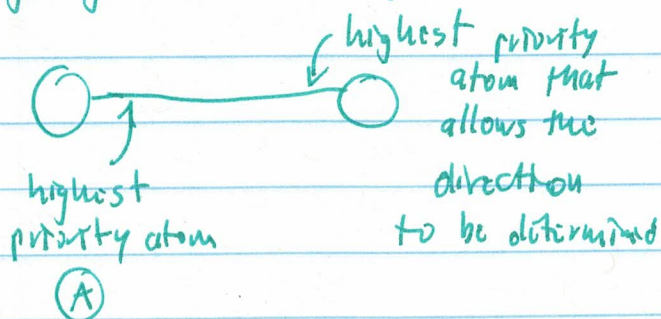 highest priority
atom that
allows the
direction
to be determined
highest
priority atom
A